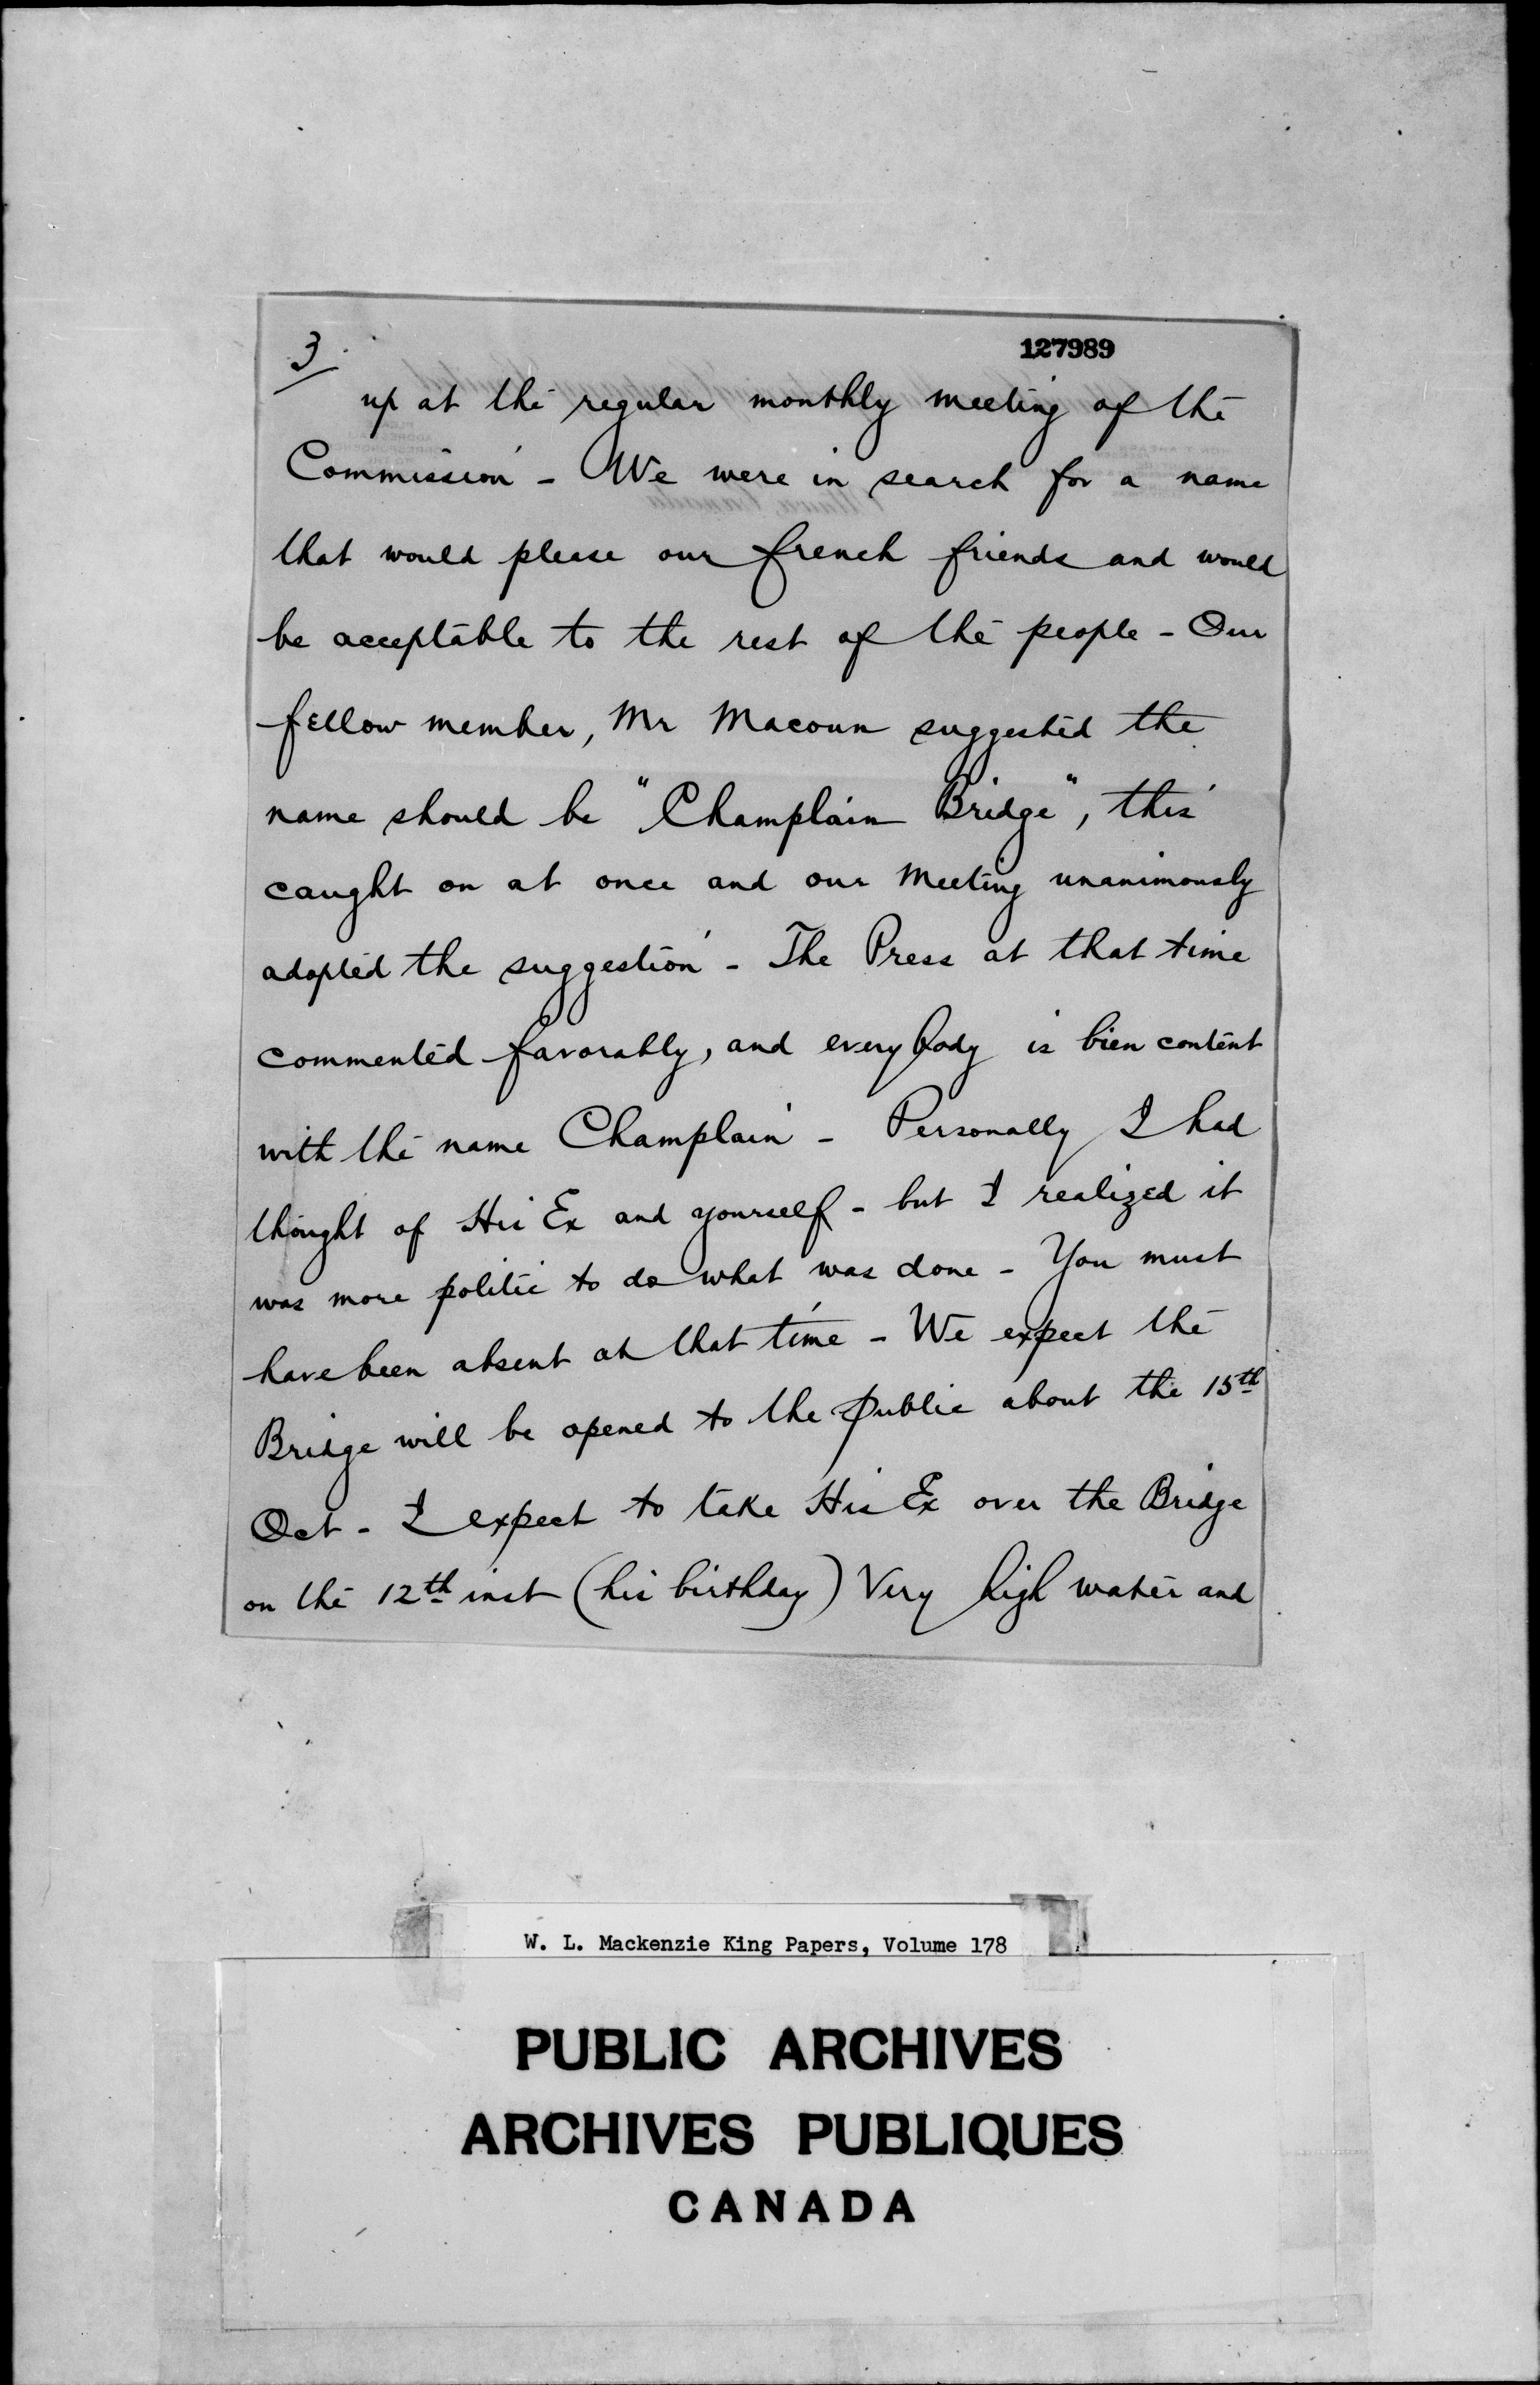 3/
127989
up at the regular monthly meeting of the
Commission - We were in search for a name
that would please our french friends and would
be acceptable to the rest of the people - Our
fellow member, Mr Macoun suggested the
name should be "Champlain Bridge", this
caught on at once and our Meeting unanimously
adopted the suggestion - The Press at that time
commented favorably, and everybody is bien content
with the name Champlain - Personally I had
thought of His Ex and yourself - but I realized it
was more politic to do what was done - You must
have been absent at that time - We expect the
Bridge will be opened to the public about the 15th
Oct - I expect to take His Ex over the Bridge
on the 12th inst (his birthday) Very high water and
W. L. Mackenzie King Papers, Volume 178
PUBLIC ARCHIVES
ARCHIVES PUBLIQUES
CANADA